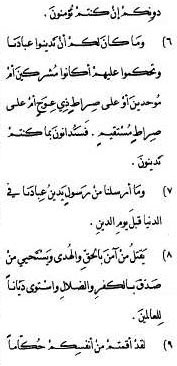 دونكم إن كنتم تؤمنون .
٦) وما كان لكم أن تدينوا عبادنا
وتحكموا عليهم أكانوا مشركين أم
موحدين أو على صراط ذي عوج أم على
صراط مستقيم . فستدانون بما كنتم
تدينون .
٧) وما أرسلنا من رسول يدين عبادنا في
الدنيا قبل يوم الدين .
٨) يقتل من آمن بالحق والهدى ويستحيي من
صدق بالكفر والضلال واستوى ديانا
للعالمين .
٩) لقد أقمتم من أنفسكم حكاما